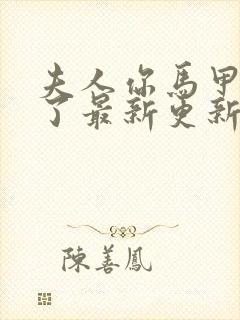 夫人你馬甲
了最新更新
陳善鳳